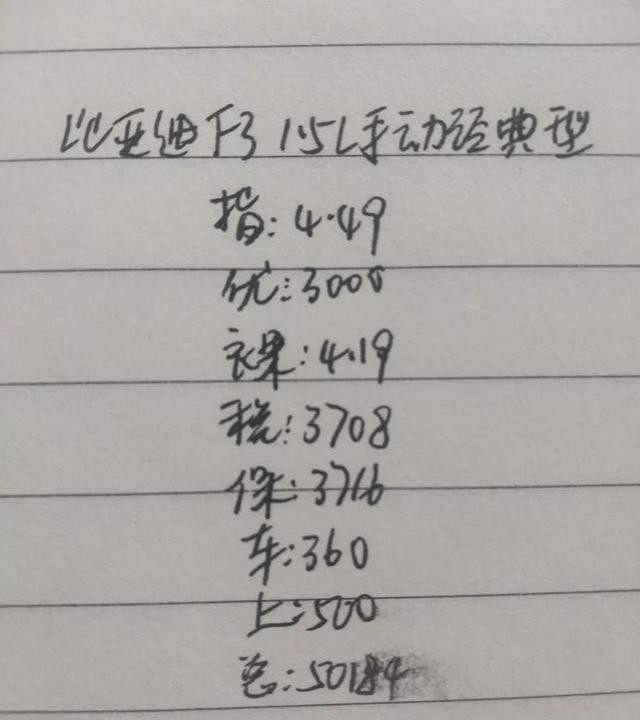 比亚迪F3 1.5L手动经典型
指:4.49
优:3000
裸:4.19
税:3708
保:3716
车:360
上:500
总:50184